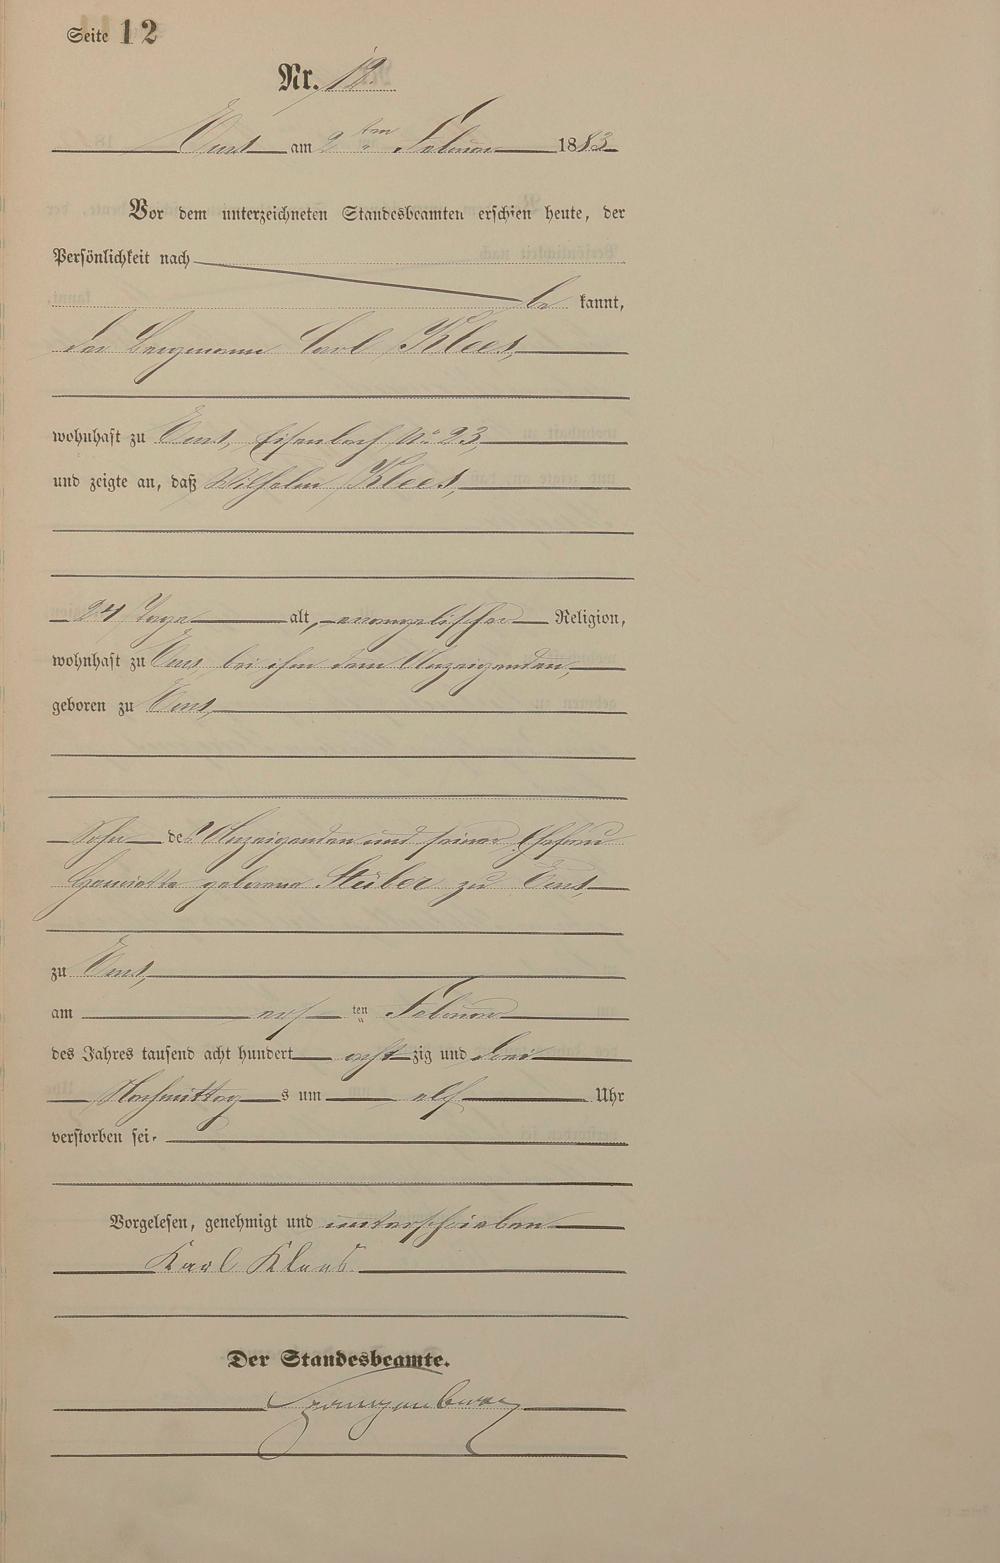 Seite 12
Nr. 12
Ems am 2ten Februar 1883
Vor dem unterzeichneten Standesbeamten erschien heute, der
Persönlichkeit nach
be kannt,
der Bergmann Carl Klees,
wohnhaft zu Ems, Eisenbach No 23,
und zeigte an, daß Wilhelm Klees,
24 Tage alt, evangelischer Religion,
wohnhaft zu Ems bei ihm dem Anzeigenden,
geboren zu Ems,
Sohn des Anzeigenden und seiner Ehefrau
Henriette geborene Stüber zu Ems,
zu Ems,
am ersten Februar
des Jahres tausend acht hundert acht zig und drei
Nachmittag s um elf Uhr
verstorben sei.
Vorgelesen, genehmigt und unterschrieben
Karl Klees
Der Standesbeamte.